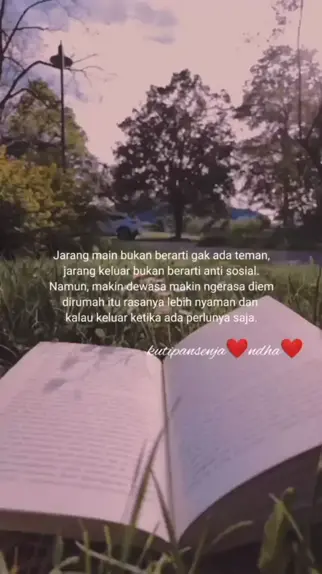 Jarang main bukan berarti gak ada teman,
jarang keluar bukan berarti anti sosial.
Namun, makin dewasa makin ngerasa diem
dirumah itu rasanya lebih nyaman dan
kalau keluar ketika ada perlunya saja.
kutipansenja❤️ndha❤️